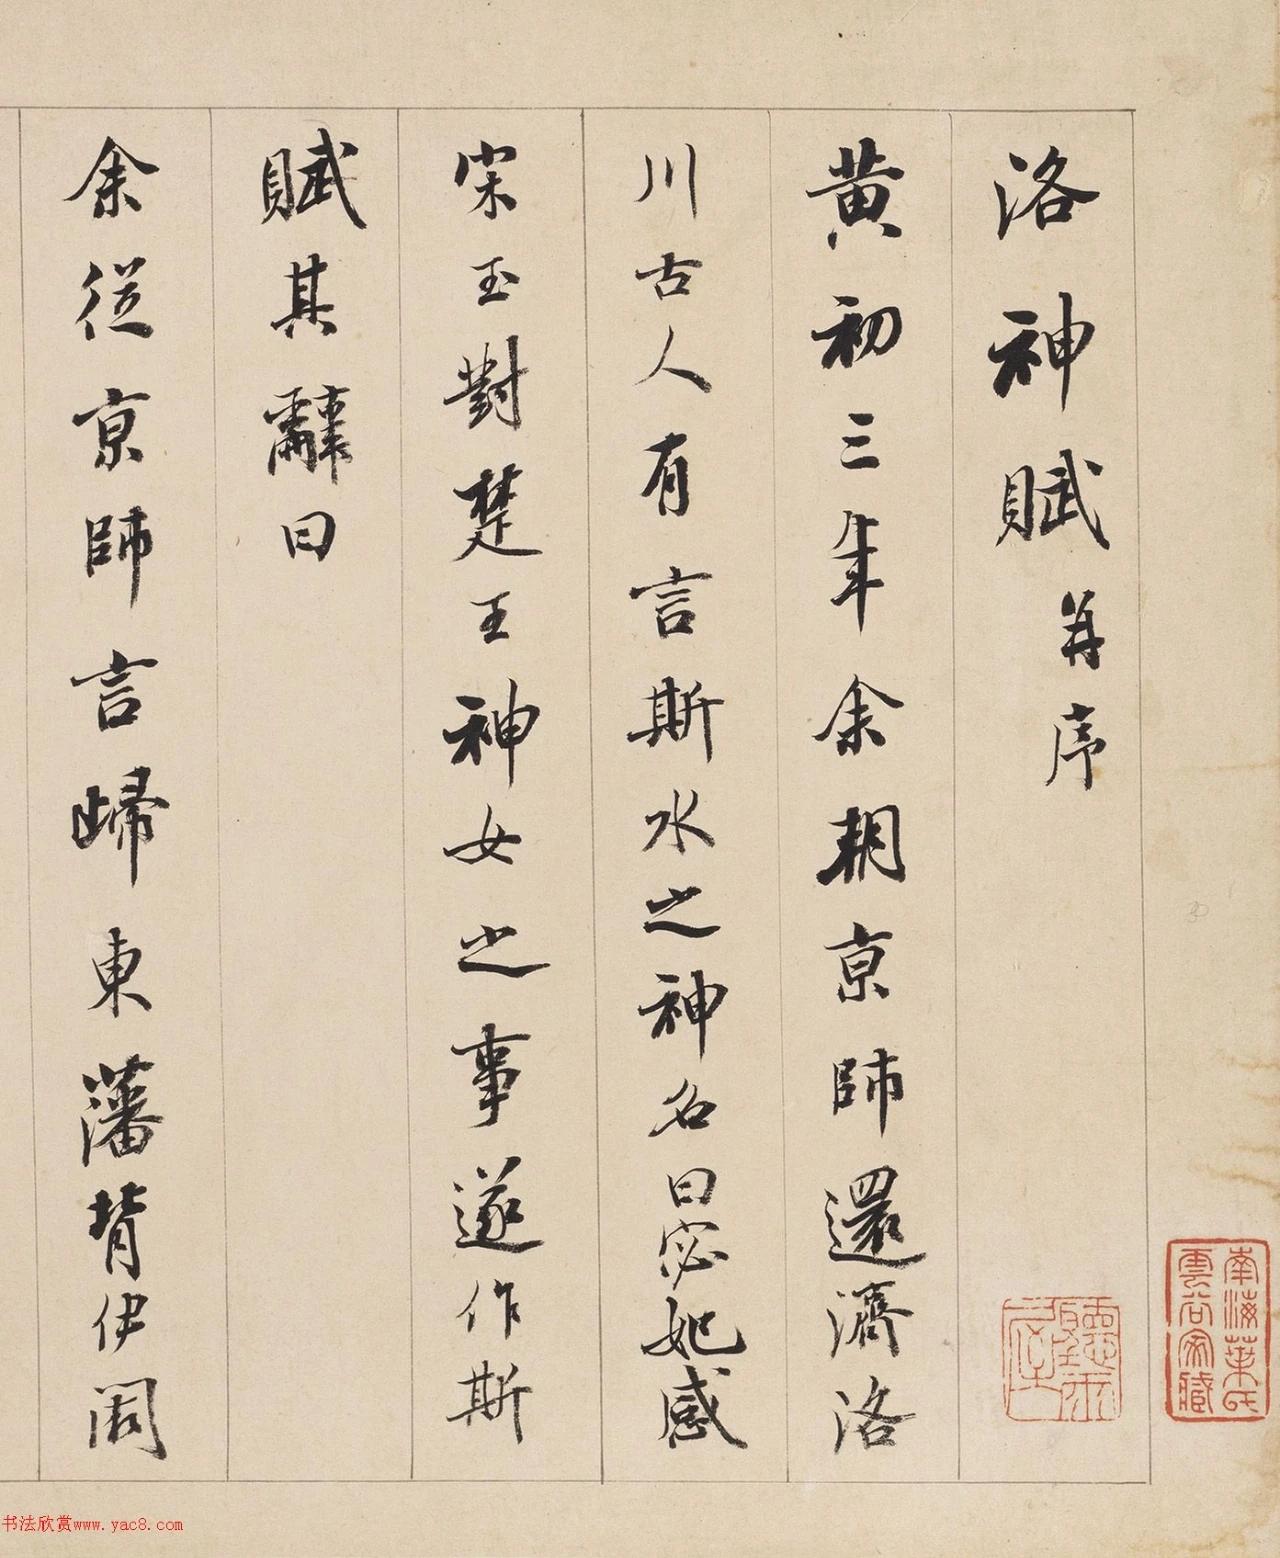 洛神賦并序
黄初三年余朝京師還濟洛
川古人有言斯水之神名曰宓妃感
宋玉對楚王神女之事遂作斯
賦其辭曰
余從京師言歸東藩背伊闕
南海葉氏
雲谷家藏
聽雨
书法欣赏www.yac8.com